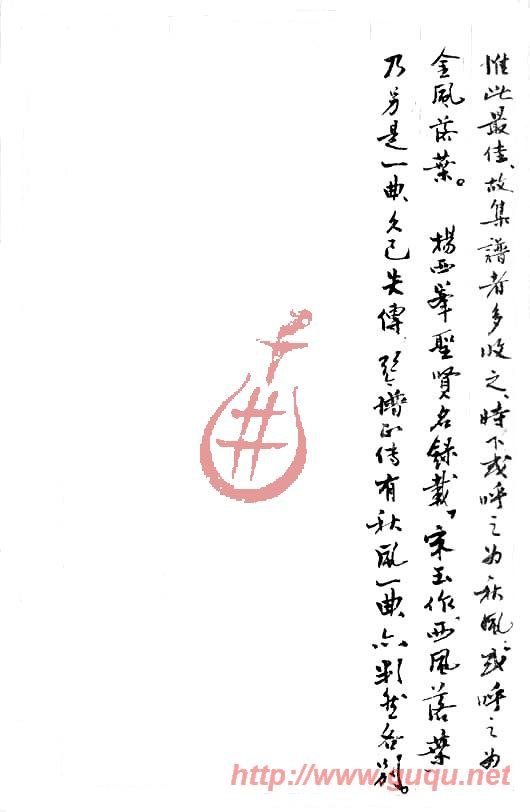 惟此最佳、故集譜者多收之、時下或呼之为秋風、或呼之为
金風落葉。 楊西峯聖賢名録載,宋玉作,西風落葉
乃另是一曲、久已失傳 琴譜正傳有秋風一曲、亦判然各別。
http://www.guqu.net